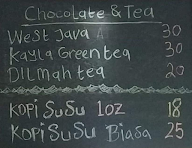 Chocolate & Tea
West Java A 30
Kayla Green tea 30
Dilmah tea 20
KOPI SuSu 1oz 18
KOPI SuSu Biasa 25